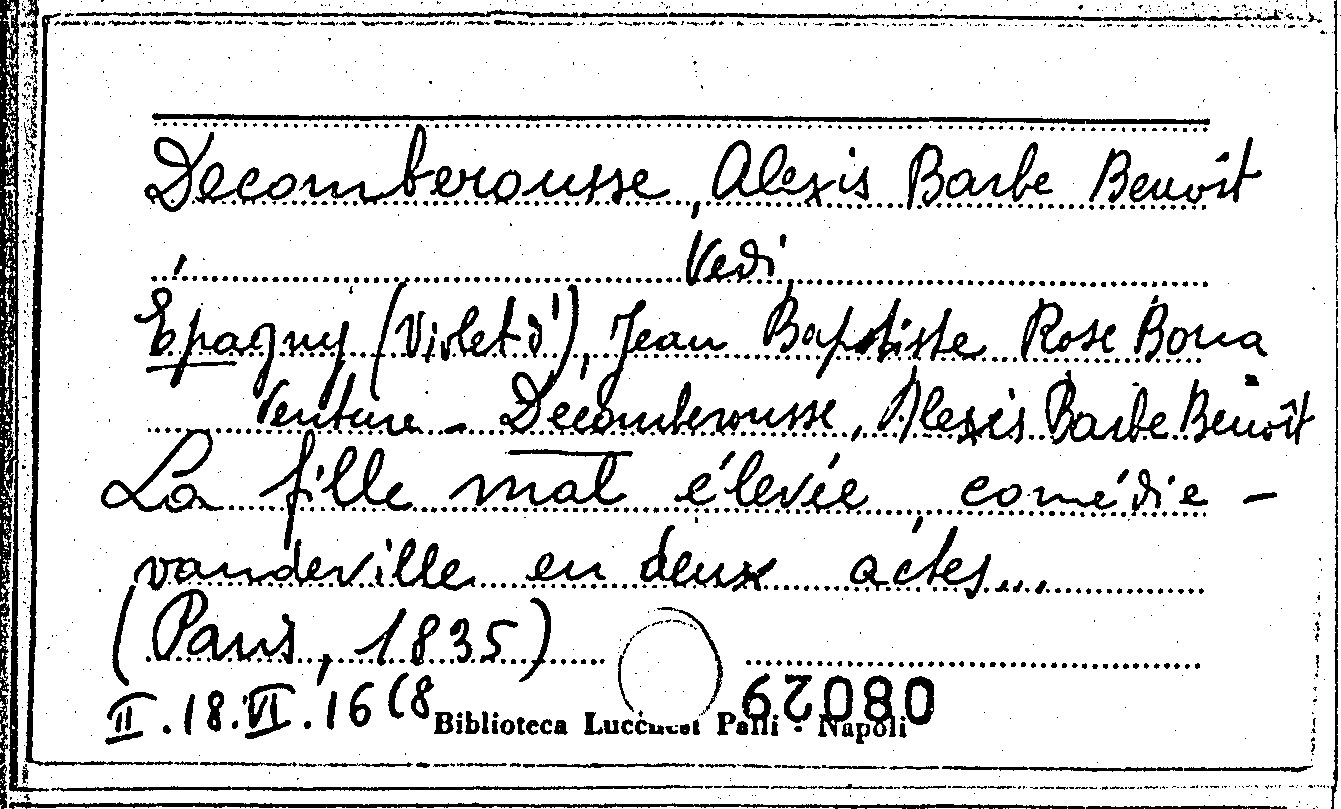 Decomberousse, Alexis Barbe Benoît
Vedi
Épagny (Violet d'), Jean Baptiste Rose Bona
Venture - Décomberousse, Alexis Barbe Benoît
La fille mal élevée, comédie -
vaudeville en deux actes...
(Paris, 1835)
II.18.VI.16(8
Biblioteca Lucchesi Palli - Napoli
08029